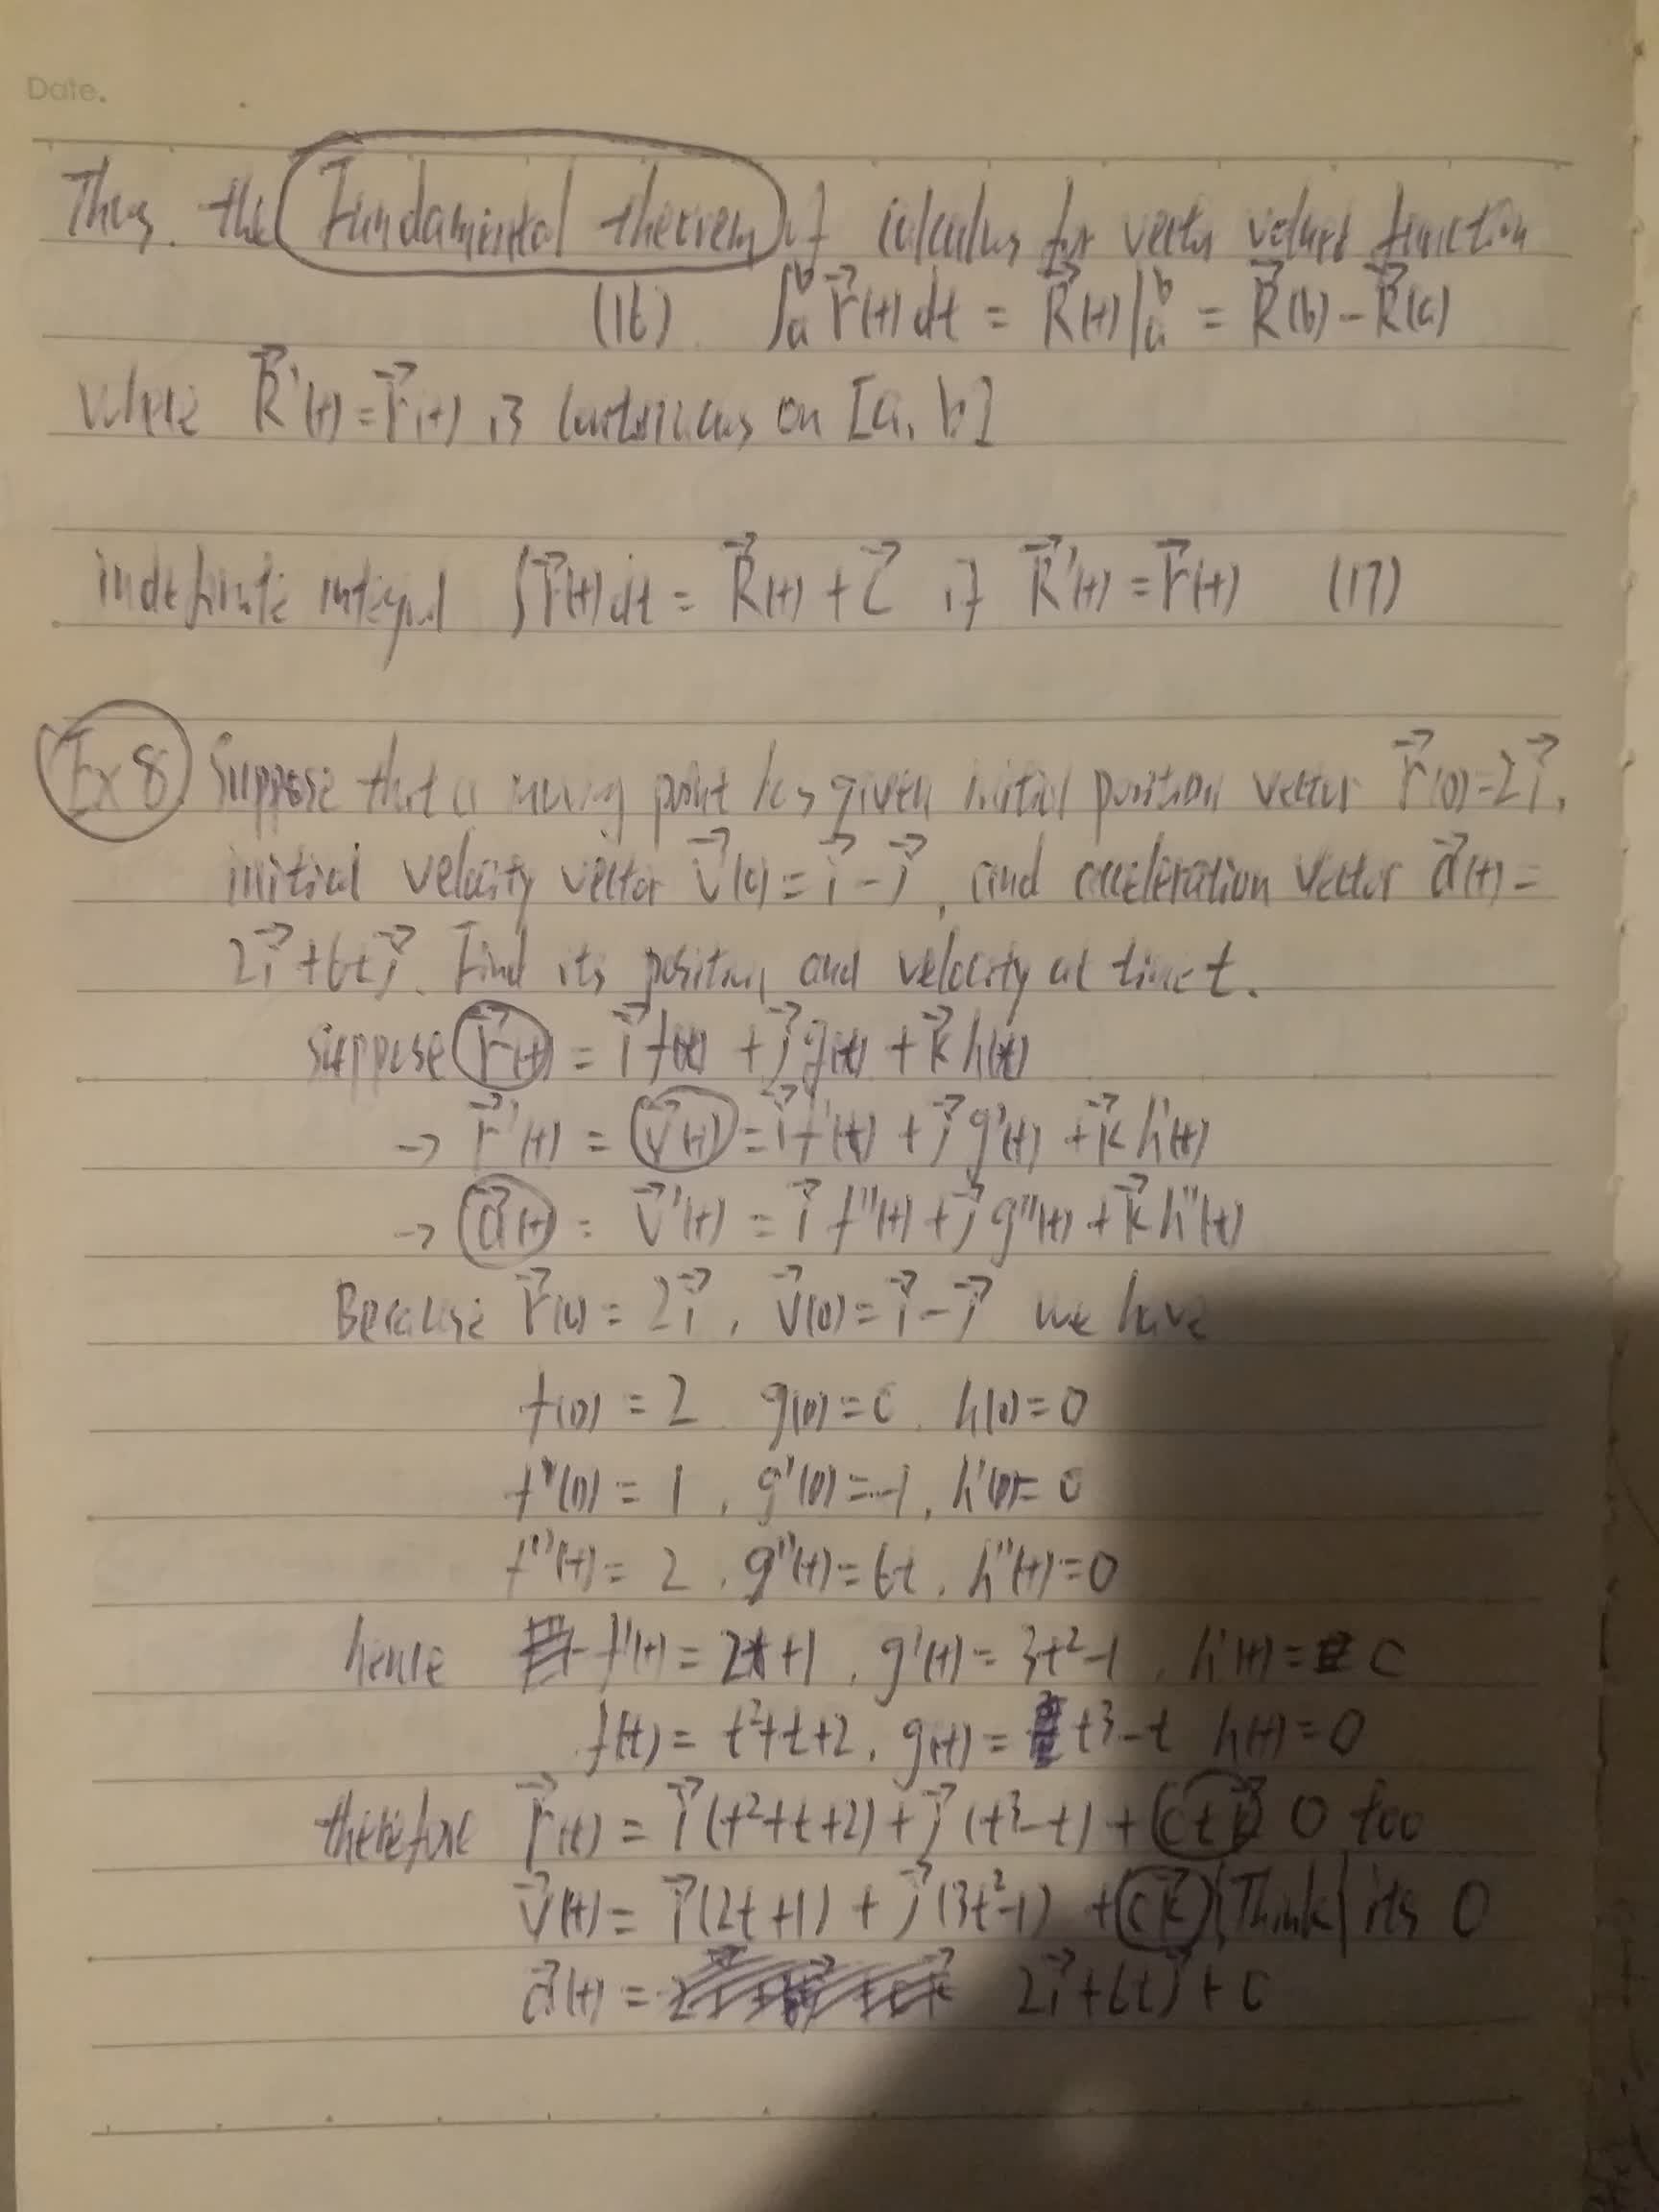 Date.
Thus. the Fundamental theorem of calculus for vector valued function
(16) ∫ₐᵇ r⃗(t) dt = R⃗(t)|ₐᵇ = R⃗(b) - R⃗(a)
where R⃗'(t) = r⃗(t) is continuous on [a, b]
indefinite integral ∫r⃗(t) dt = R⃗(t) + C⃗ if R⃗'(t) = r⃗(t) (17)
Ex 8 Suppose that a moving point has given initial position vector r⃗(0)=2i⃗,
initial velocity vector v⃗(0) = i⃗ - j⃗, and acceleration vector a⃗(t) =
2i⃗ + 6tj⃗. Find its position and velocity at time t.
suppose r⃗(t) = i⃗ f(t) + j⃗ g(t) + k⃗ h(t)
→ r⃗'(t) = v⃗(t) = i⃗ f'(t) + j⃗ g'(t) + k⃗ h'(t)
→ a⃗(t) = v⃗'(t) = i⃗ f''(t) + j⃗ g''(t) + k⃗ h''(t)
Because r⃗(0) = 2i⃗, v⃗(0) = i⃗ - j⃗ we have
f(0) = 2 g(0) = 0. h(0) = 0
f'(0) = 1, g'(0) = -1, h'(0) = 0
f''(t) = 2, g''(t) = 6t, h''(t) = 0
hence f'(t) = 2t + 1, g'(t) = 3t² - 1, h'(t) = c
f(t) = t² + t + 2, g(t) = t³ - t h(t) = 0
therefore r⃗(t) = i⃗ (t² + t + 2) + j⃗ (t³ - t) + ctk⃗ 0 too
v⃗(t) = i⃗ (2t + 1) + j⃗ (3t² - 1) + ck⃗ (Think) its 0
a⃗(t) = 2i⃗ + 6tj⃗ + c